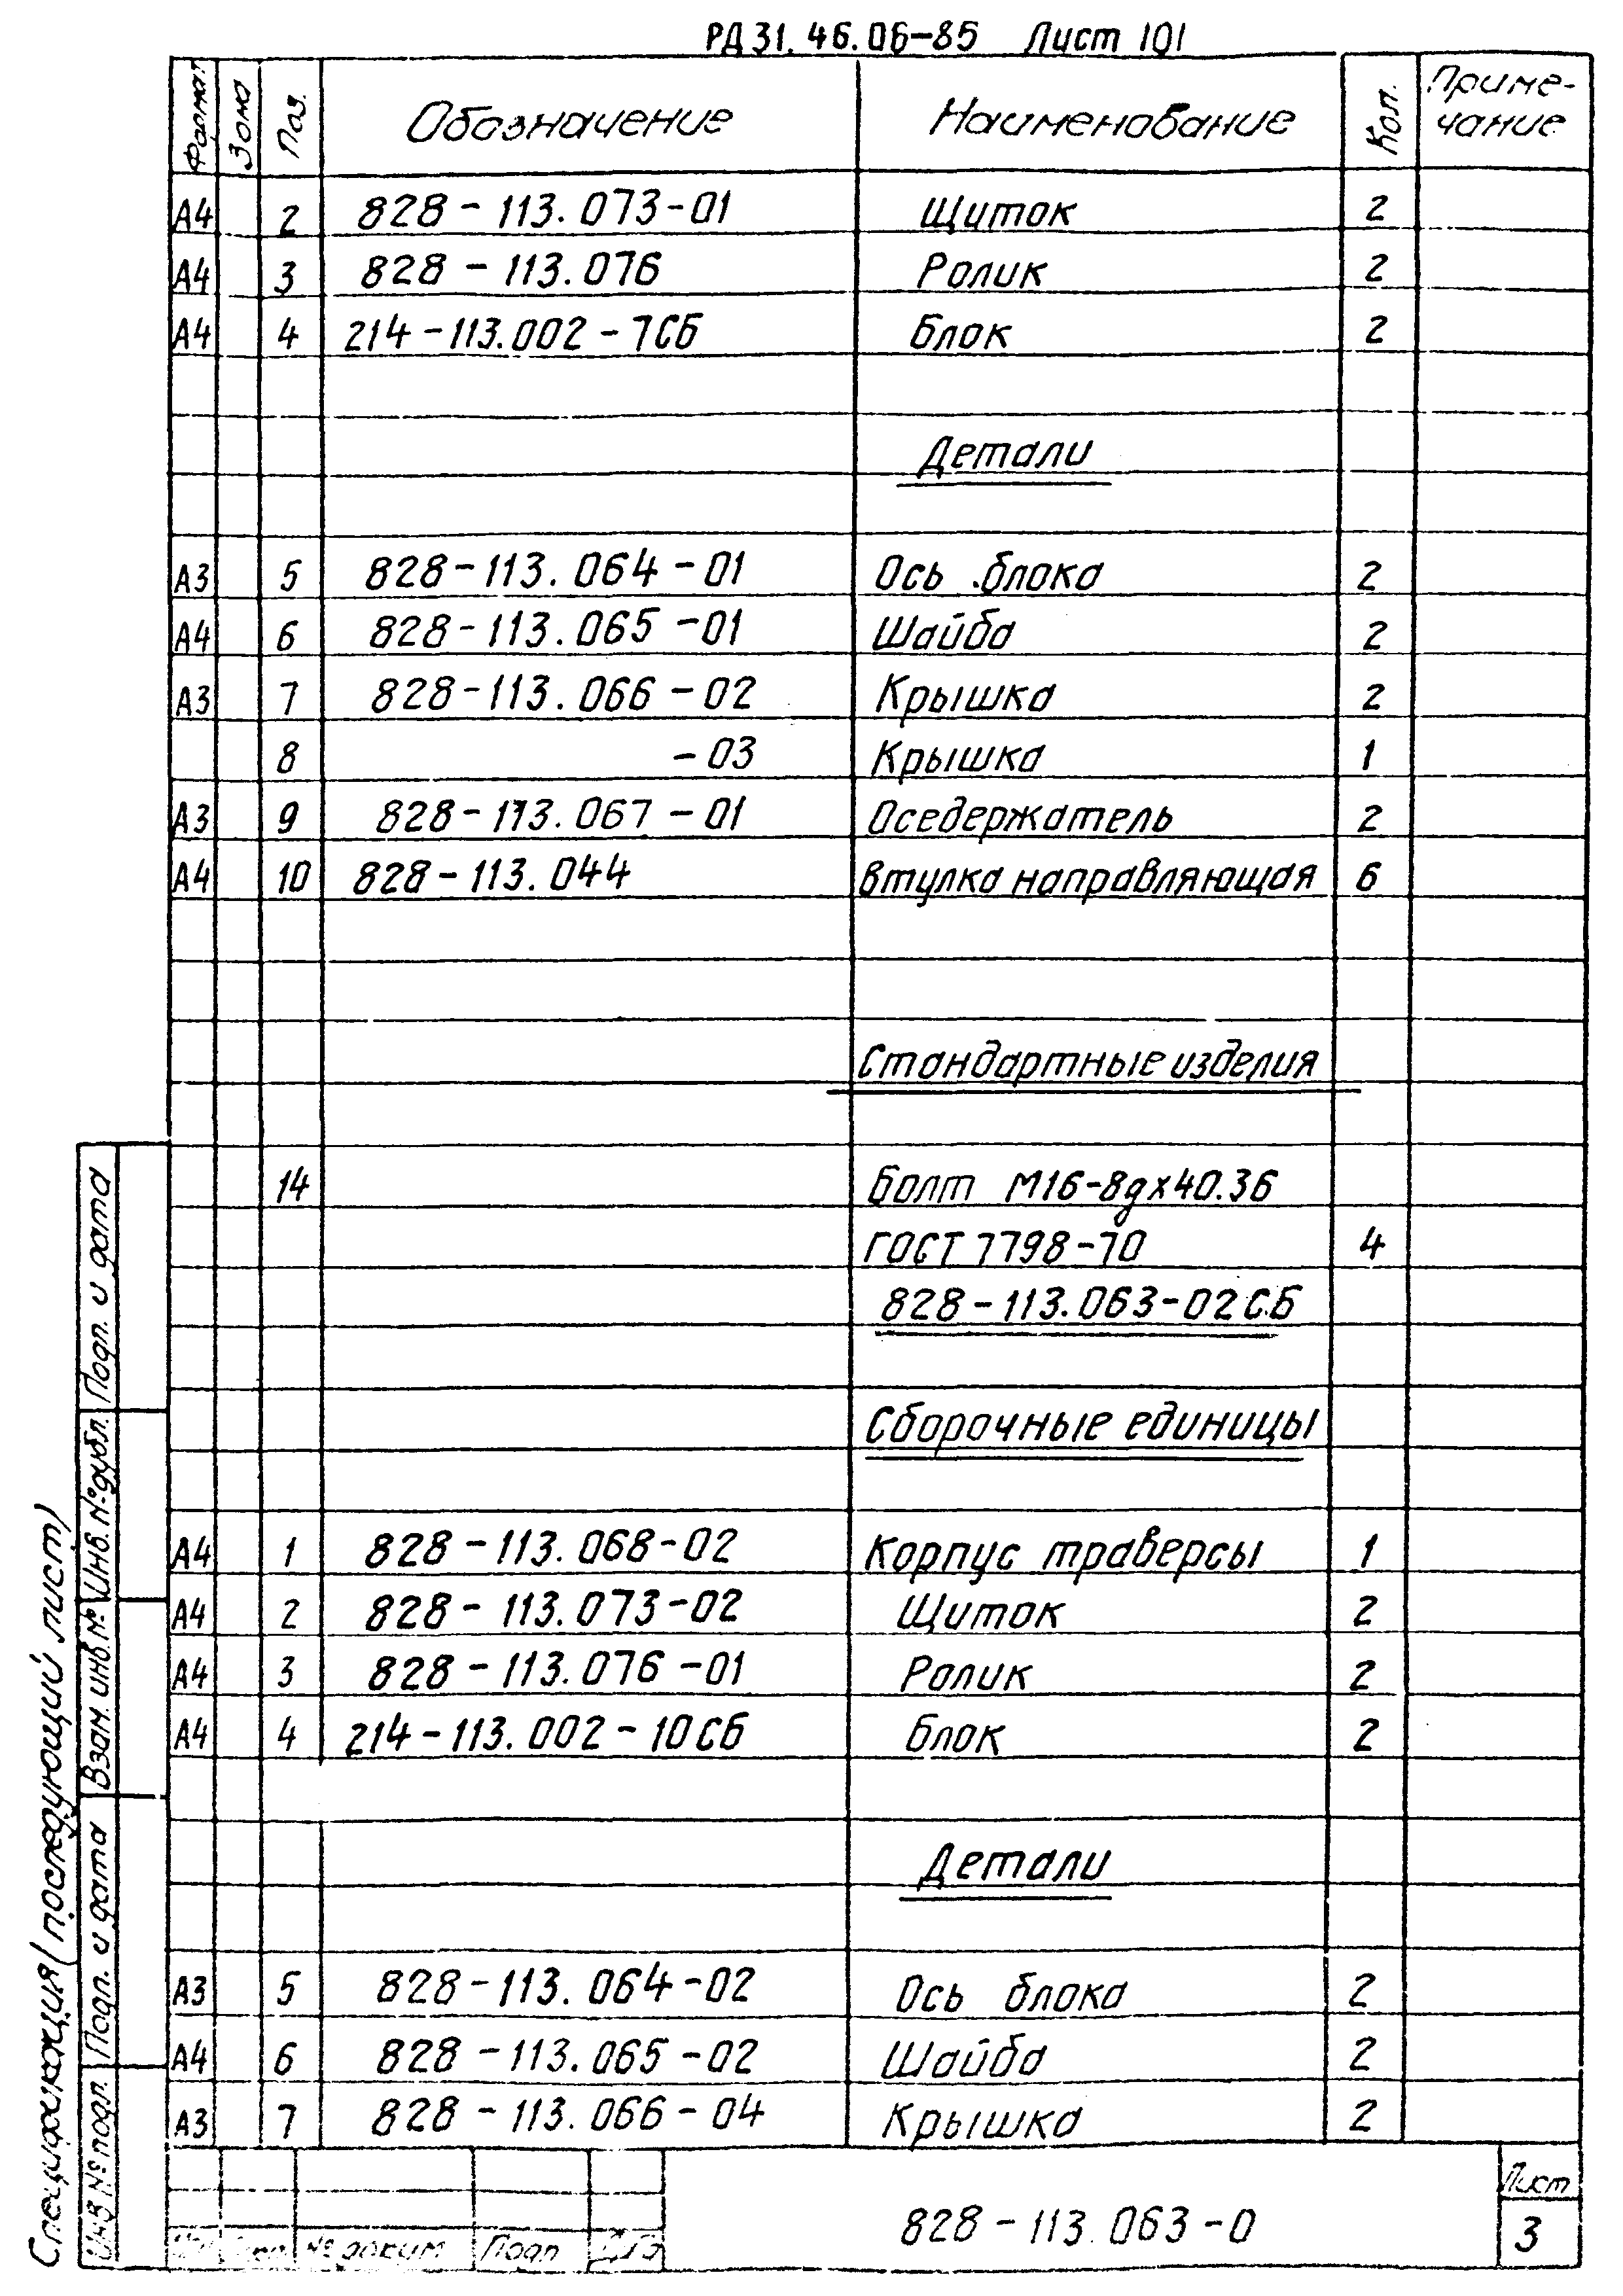 РД 31.46.06-85 Лист 101
Формат Зона Поз. Обозначение Наименование Кол. Примечание
А4 2 828-113.073-01 Щиток 2
А4 3 828-113.076 Ролик 2
А4 4 214-113.002-7СБ Блок 2
Детали
А3 5 828-113.064-01 Ось блока 2
А4 6 828-113.065-01 Шайба 2
А3 7 828-113.066-02 Крышка 2
8 -03 Крышка 1
А3 9 828-113.067-01 Оседержатель 2
А4 10 828-113.044 Втулка направляющая 6
Стандартные изделия
14 Болт М16-8gх40.36
ГОСТ 7798-70 4
828-113.063-02СБ
Сборочные единицы
А4 1 828-113.068-02 Корпус траверсы 1
А4 2 828-113.073-02 Щиток 2
А4 3 828-113.076-01 Ролик 2
А4 4 214-113.002-10СБ Блок 2
Детали
А3 5 828-113.064-02 Ось блока 2
А4 6 828-113.065-02 Шайба 2
А3 7 828-113.066-04 Крышка 2
№ докум Подп Дата
828-113.063-0
Лист
3
Спецификация (последующий лист)
Инв № подл. Подп. и дата Взам. инв. № Инв. № дубл. Подп. и дата